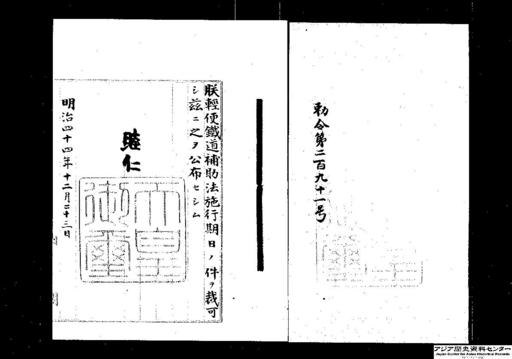 勅令第二百九十一号
朕輕便鐵道補助法施行期日ノ件ヲ裁可
シ茲ニ之ヲ公布セシム
睦仁
天皇御璽
明治四十四年十二月二十三日
アジア歴史資料センター
Japan Center for Asian Historical Records